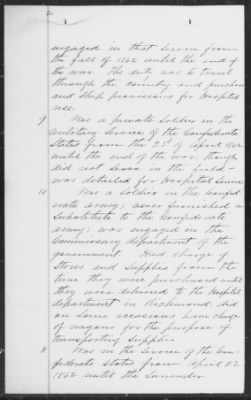 2
engaged in that service from
the fall of 1862 until the end of
the war. The duty was to travel
through the country and purchase
and ship provisions for Hospital
use.
9 Was a private Soldier in the
military Service of the Confederate
States from the 22d of April 1862
until the end of the war, though
did not serve in the field -
was detailed for Hospital Service
10 Was a Soldier in the Confed-
erate army; never furnished a
Substitute to the Confederate
army; was engaged in the
Commissary department of the
government. Had charge of
Stores and Supplies from the
time they were purchased until
they were delivered to the Hospital
department in Richmond. Did
on some occasions have charge
of wagons for the purpose of
transporting Supplies.
11 Was in the Service of the Con-
federate States from April 22
1862 until the Surrender